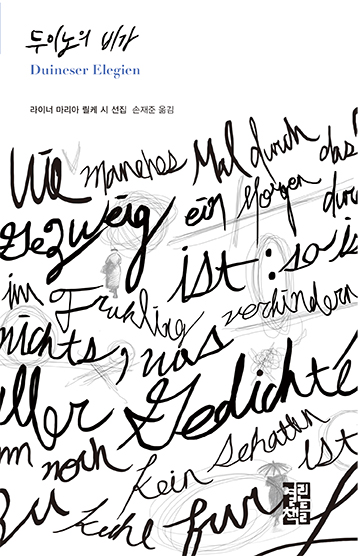 두이노의 비가
Duineser Elegien
라이너 마리아 릴케 시 선집 손재준 옮김
Wie manches Mal durch das
Gezweig ein Morgen durch
ist: so is
im Fruhling verhindern
nichts, was
ller Gedichte
noch kein Schatten ist
zu kuhle fur
열린
책들